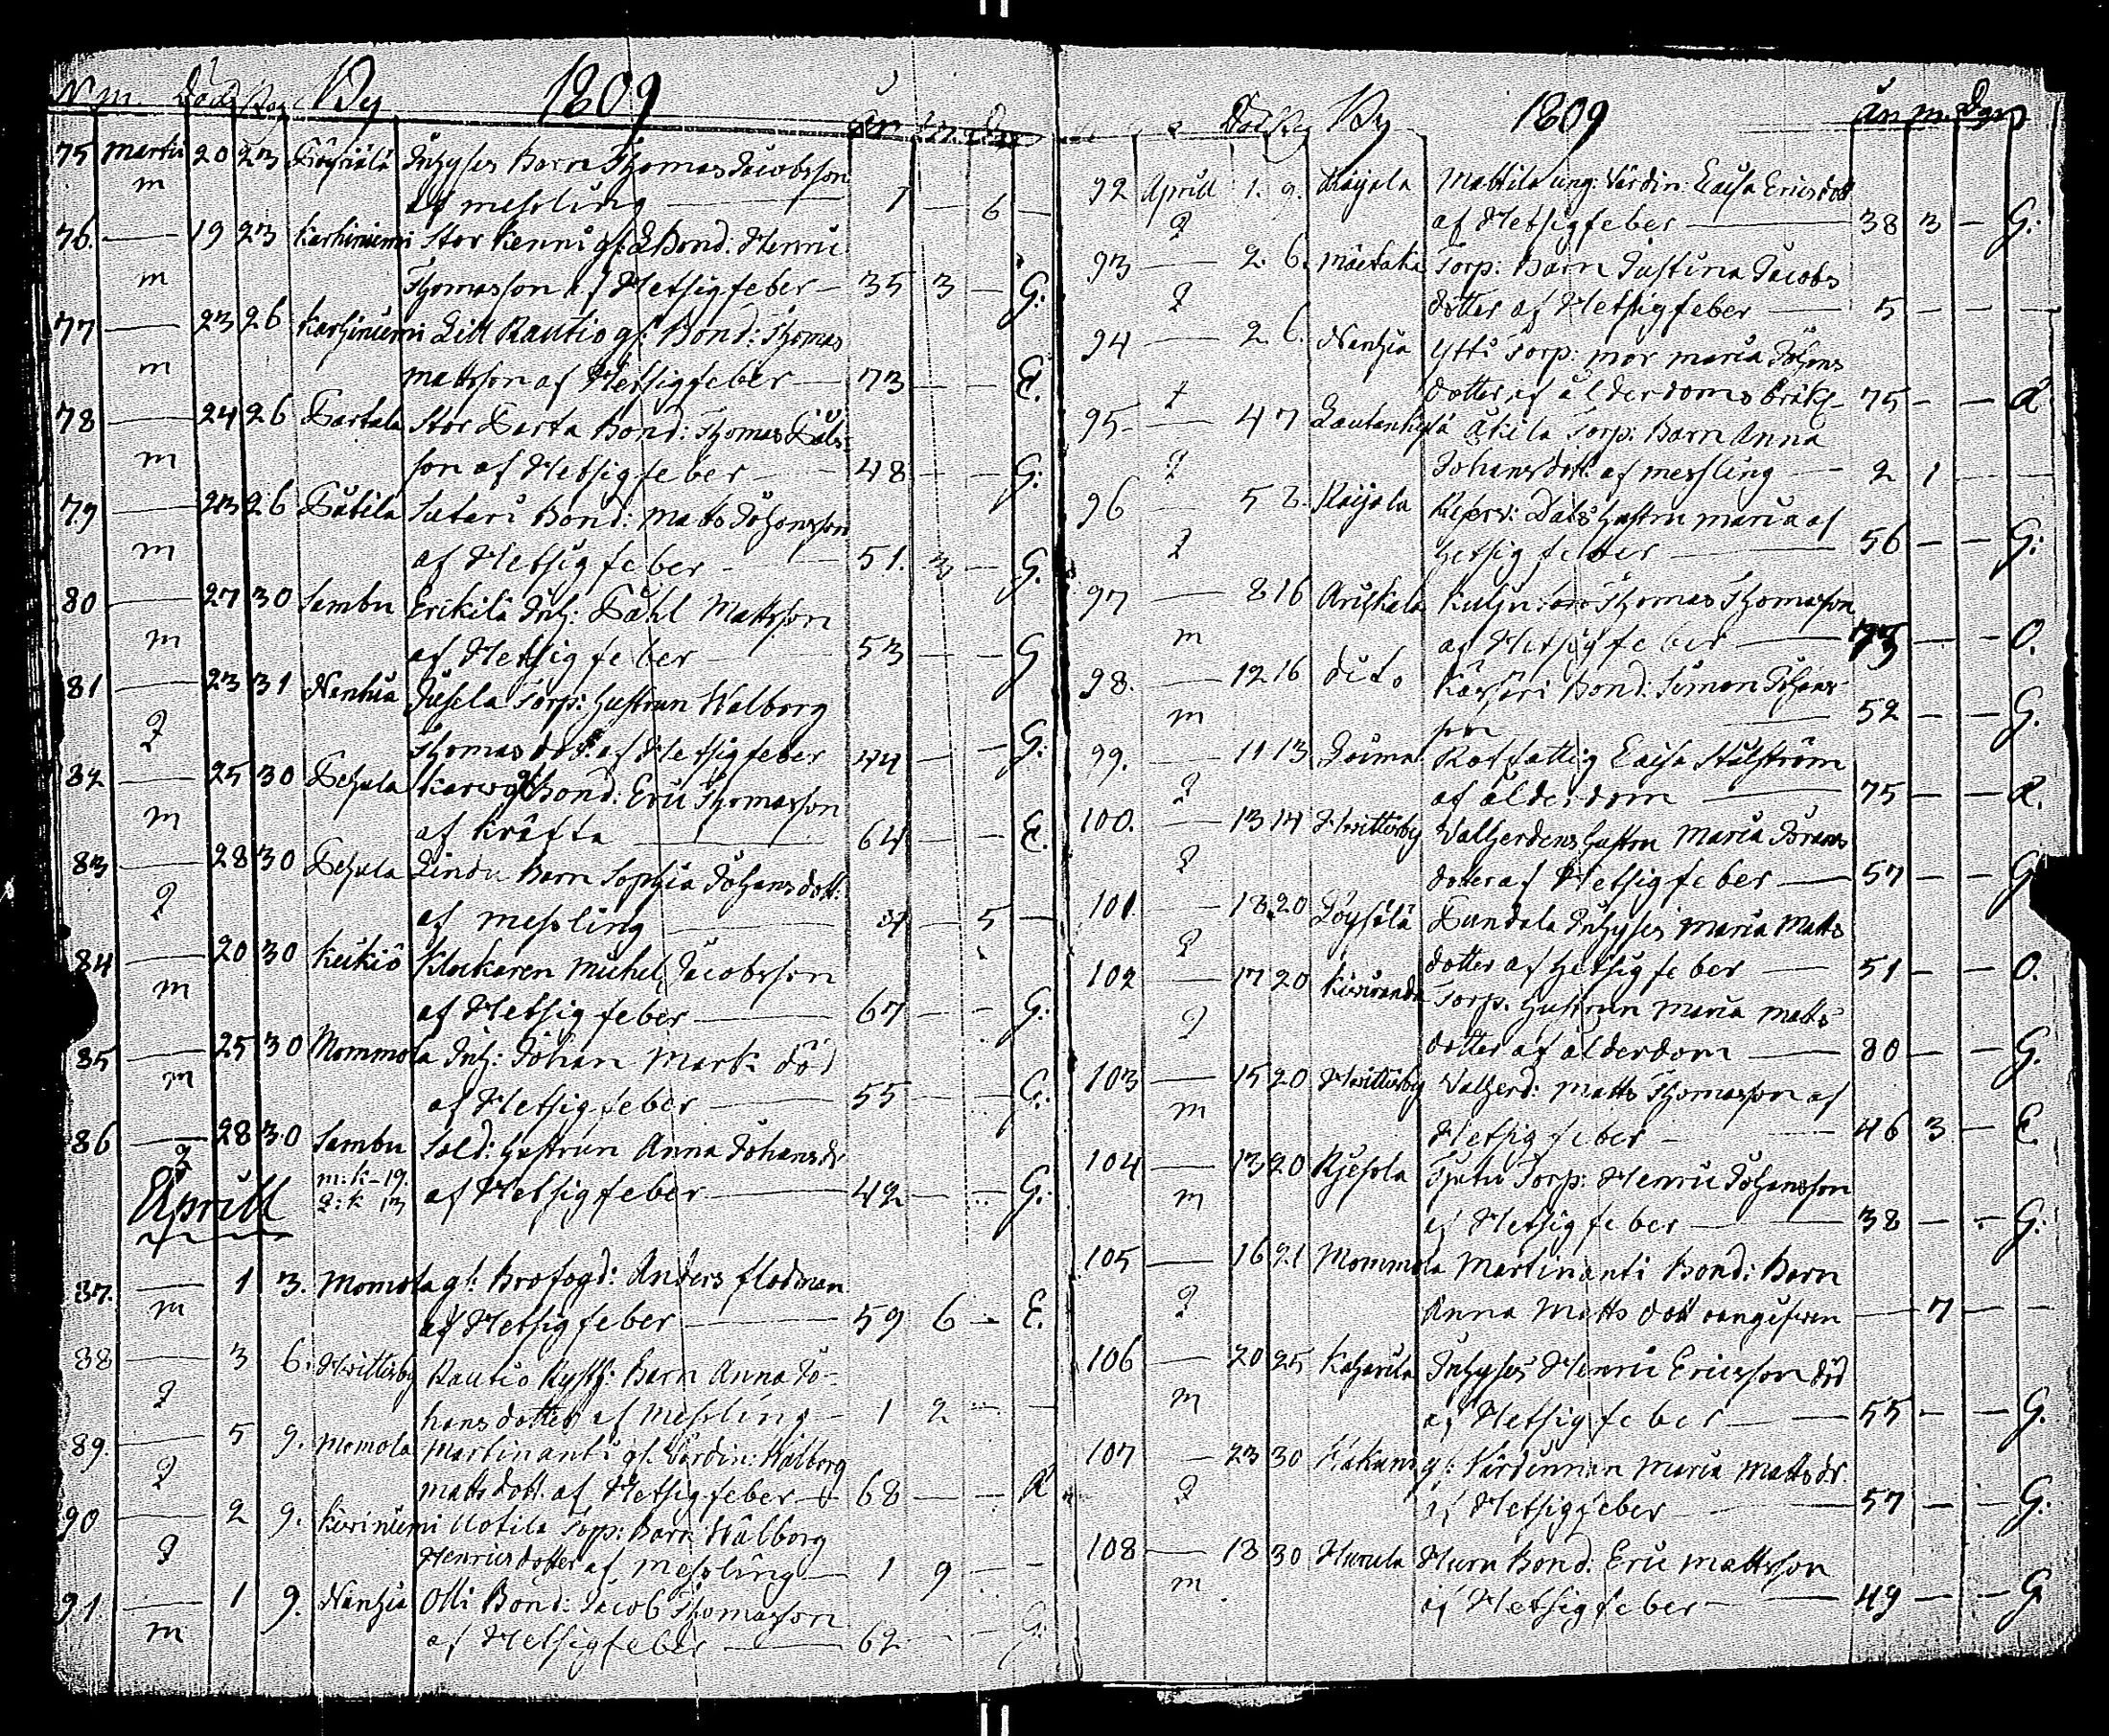 N m. Död Beg By 1809 år m. Dgr
75 Martii 20 23 Löysälä Inhyses Barn Thomas Jacobsson
m af messling — 1 — 6 —
76. — 19 23 Karhiniemi Stor Kenni gl: Bond. Henric
m Thomasson af Hetsigfeber — 35 3 — G:
77 — 23 26 Karhiniemi Lill Rautio gl: Bond: Thomas
m Mattsson af Hetsigfeber — 73 — — E.
78 — 24 26 Bond: Thomas
m son af Hetsigfeber — 48 — — G:
79 — 23 26 Sutari Bond: Matts Johansson
m af Hetsigfeber — 51. 3 — G.
80 — 27 30 Sambu Erikilä Inh: Påhl Mattsson
m af Hetsigfeber — 53 — — G
81 — 23 31 Nanhia Jusela Torp: Hustrun Walborg
Q Thomas dott: af Hetsigfeber 44 — — G:
82 — 25 30 Bond: Eric Thomasson
m af kräfta — 64 — — E.
83 — 28 30 Lindu Barn Sophia Johans dott:
Q af messling — 4 — 5 —
84 — 20 30 Keikiö Klockaren Michel Jacobsson
m af Hetsigfeber — 67 — — G:
85 — 25 30 Mommola Inh: Johan Mark död
m af Hetsigfeber — 55 — — G:
86 — 28 30 Sambu Sold: Hustrun Anna Johans dr
Q m: k - 19. af Hetsigfeber — 42 — — G:
Aprill Q: k 13
87. — 1 3. Momola gl: Brofogd: Anders flodman
m af Hetsigfeber — 59 6 — E.
88 — 3 6. Hvittisby Rautio Ryth: Barn Anna Jo-
Q hans dotter af Messling — 1 2 — —
89. — 5 9. Momola Martinanti gl. Värdin: Walborg
Q matts dott. af Hetsigfeber — 68 — — A
90 — 2 9. Kiviniemi Uotila Torp: Barn Walborg
Q Henrics dotter af Messling — 1 9 — —
91 — 1 9. Nanhia Olli Bond: Jacob Thomasson
m af Hetsigfeber — 62 — — G:
Död Beg By 1809 år m. Dgr
92 Aprill 1. 9. Raijala Mattila ung: Värdin: Caisa Erics dott
Q af Hetsigfeber — 38 3 — G:
93 — 2. 6. Torp: Barn Justina Jacobs
Q dotter af Hetsigfeber — 5 — — —
94 — 2 6. Nanhia Ytti Torp: mor Maria Johans
Q dotter af ålderdoms bräkl — 75 — — A
95 — 4 7 Lautenkylä Äkila Torp: Barn Anna
Q Johans dott. af messling — 2 1 — —
96 — 5 8. Raijala Hustru Maria af
Q Hetsig feber — 56 — — G:
97 — 8 16 Thomas Thomasson
m af Hetsigfeber — 73 — — O.
98. — 12 16 dito Kässäri Bond: Simon Johans
m son — 52 — — G.
99. — 11 13 Loima Rotfattig Caisa Stålström
Q af ålderdom — 75 — — A.
100. — 13 14 Hvittisby Vallherdens Hustru Maria Görans
Q dotter af Hetsigfeber — 57 — — G
101. — 18 20 Löysälä Inhyses Maria Matts
Q dotter af Hetsigfeber — 51 — — O.
102 — 17 20 Torp. Hustrun Maria Matts
Q dotter af ålderdom — 80 — — G.
103 — 15 20 Hvittisby Vallherd: Matts Thomasson af
m Hetsigfeber — 46 3 — E.
104 — 13 20 Torp: Henric Johansson
m af Hetsigfeber — 38 — — G:
105 — 16 21 Mommola Martinanti Bond: Barn
Q Anna Matts dott oangifven — 7 — —
106 — 20 25 Kaharila Inhyses Henric Ericsson död
m af Hetsigfeber — 55 — — G.
107 — 23 30 Kakuni gl: Värdinnan Maria Matts dr.
Q af Hetsigfeber — 57 — — G:
108 — 18 30 Hurula Huru Bond: Eric Mattsson
m af Hetsigfeber — 49 — — G